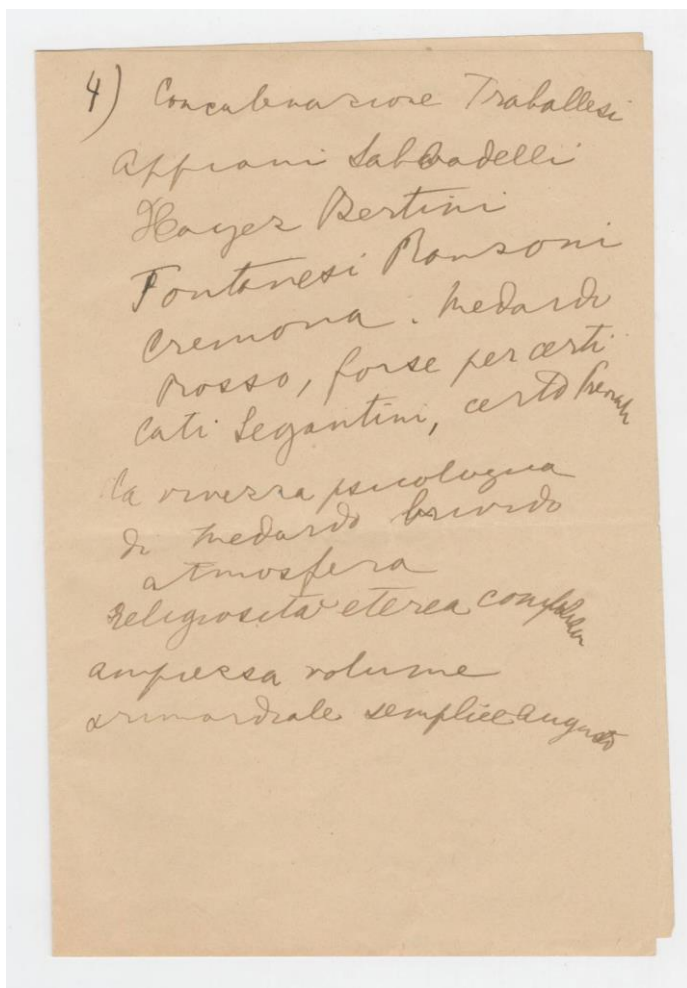 4) Concatenazione Traballesi
Appiani Sabbadelli
Hayez Bertini
Fontanesi Ranzoni
Cremona. Medardo
Rosso, forse per certi
lati Segantini, certo
la vivezza psicologica
di Medardo brivido
atmosfera
religiosità eterea
ampiezza volume
primordiale semplice augusto